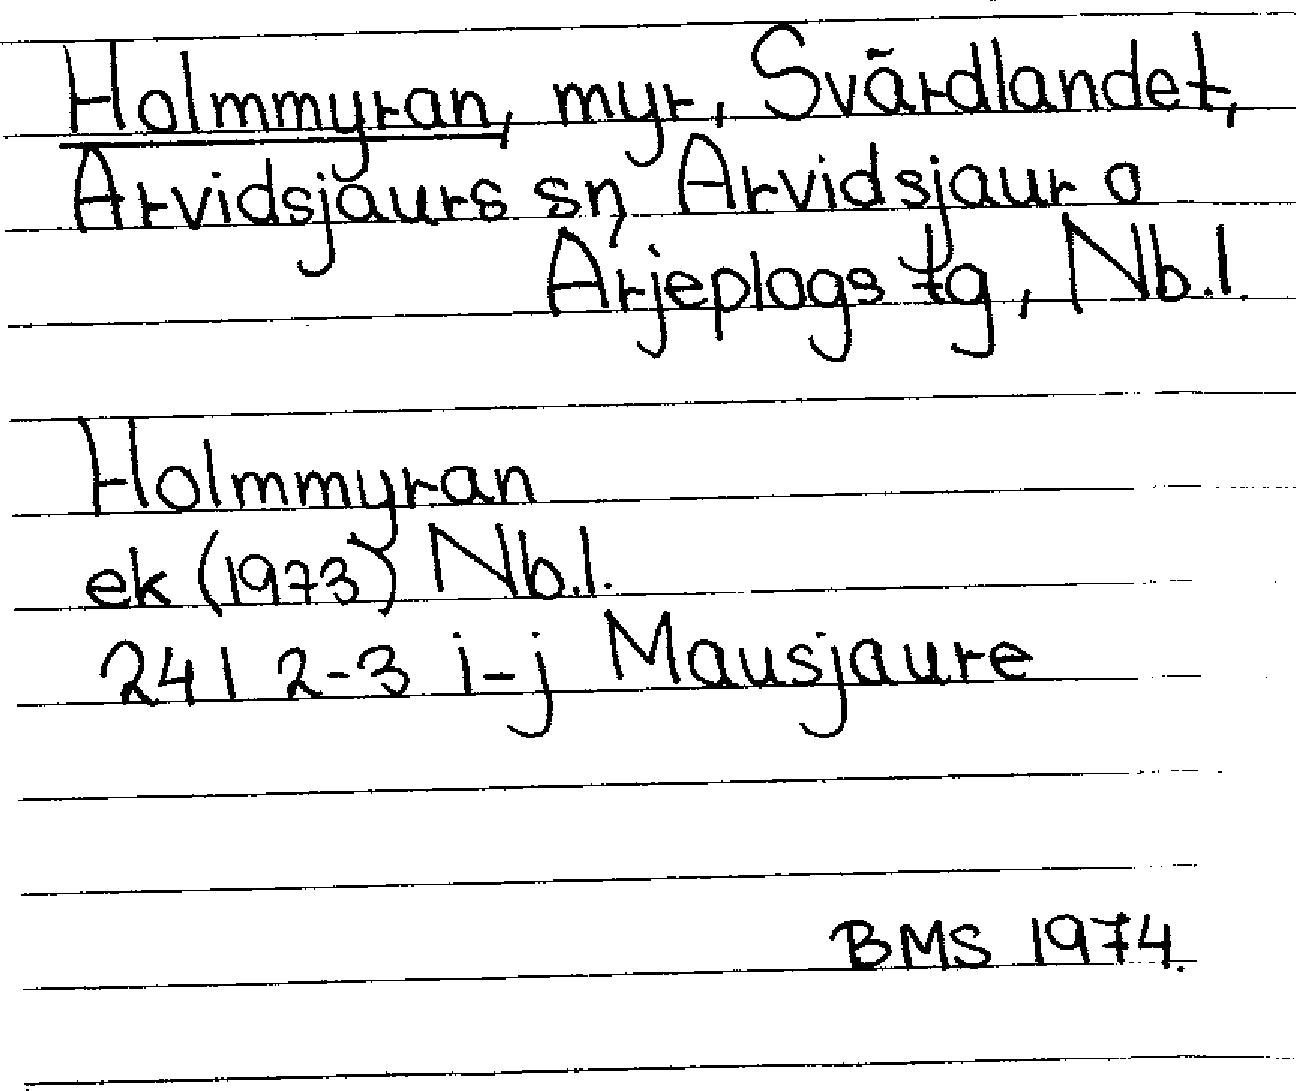 Holmmyran, myr, Svärdlandet,
Arvidsjaurs sn, Arvidsjaur o
Arjeplogs tg, Nb.l.
Holmmyran
ek (1973) Nb.l.
24I 2-3 i-j Mausjaure
BMS 1974.